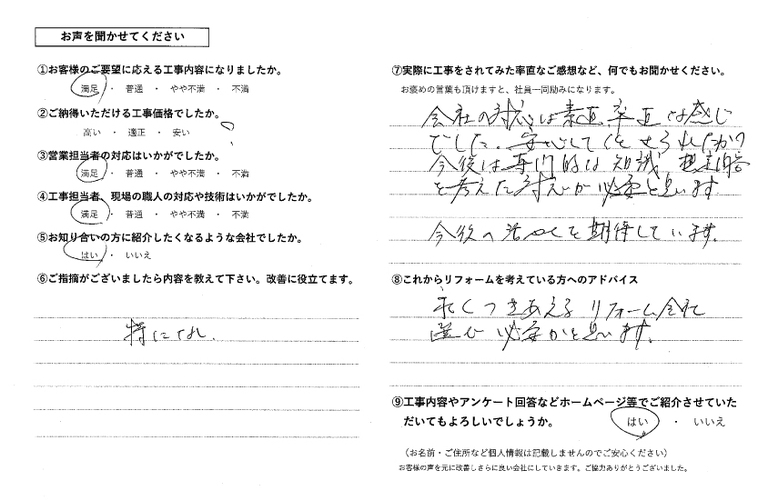 お声を聞かせてください
①お客様のご要望に応える工事内容になりましたか。
満足 ・ 普通 ・ やや不満 ・ 不満
②ご納得いただける工事価格でしたか。
高い ・ 適正 ・ 安い
③営業担当者の対応はいかがでしたか。
満足 ・ 普通 ・ やや不満 ・ 不満
④工事担当者、現場の職人の対応や技術はいかがでしたか。
満足 ・ 普通 ・ やや不満 ・ 不満
⑤お知り合いの方に紹介したくなるような会社でしたか。
はい ・ いいえ
⑥ご指摘がございましたら内容を教えて下さい。改善に役立てます。
特になし.
⑦実際に工事をされてみた率直なご感想など、何でもお聞かせください。
お褒めの言葉も頂けますと、社員一同励みになります。
会社の対応は素直、率直な感じ
でした。安心して
今後は専門的な知識
を考えた対応が必要と思います
今後の活やくを期待しています。
⑧これからリフォームを考えている方へのアドバイス
永くつきあえるリフォーム会社
選び必要かと思います。
⑨工事内容やアンケート回答などホームページ等でご紹介させていた
だいてもよろしいでしょうか。
はい ・ いいえ
（お名前・ご住所など個人情報は記載しませんのでご安心ください）
お客様の声を元に改善しさらに良い会社にしていきます。ご協力ありがとうございました。